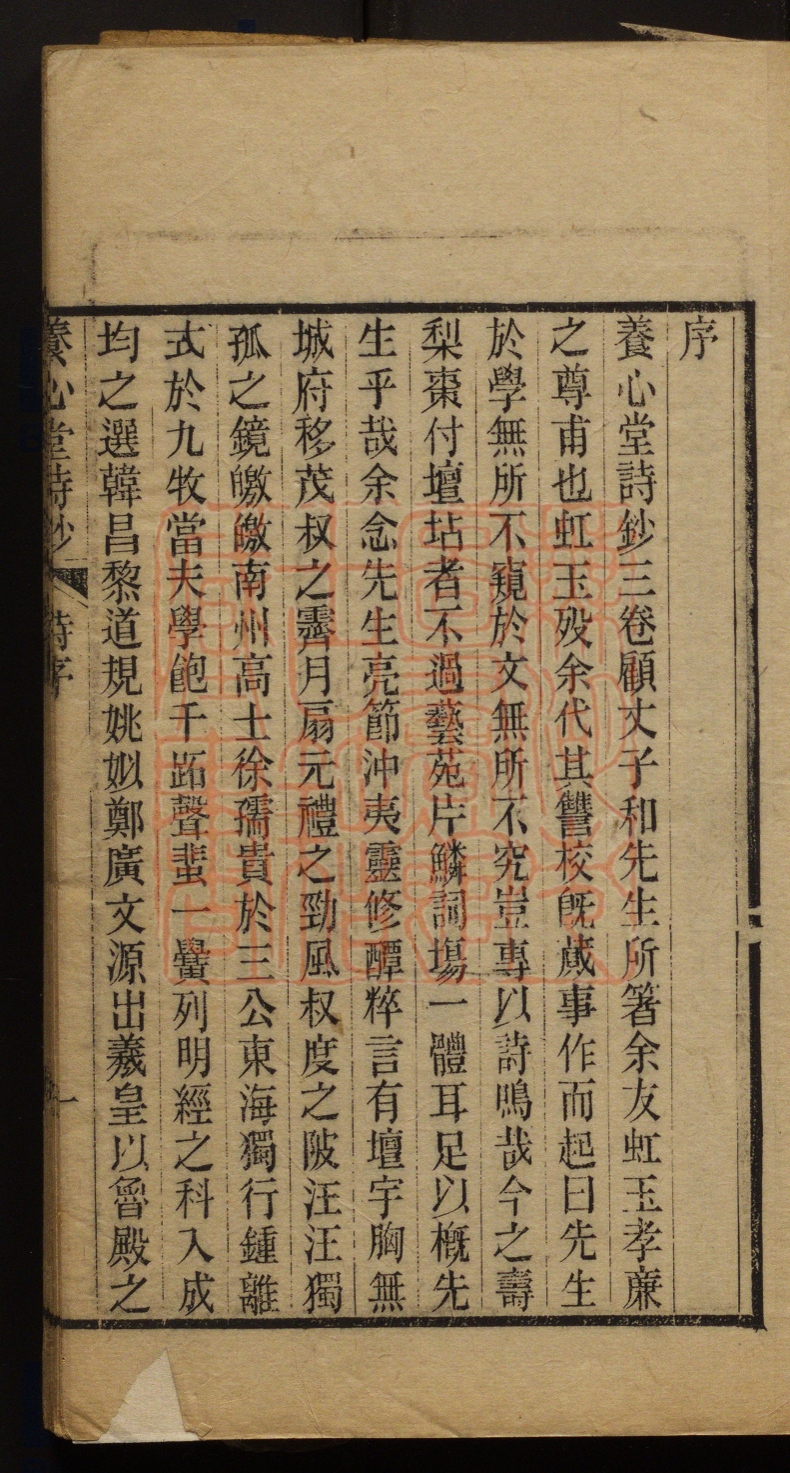 序
養心堂詩鈔三卷顧丈子和先生所箸余友虹玉孝廉
之尊甫也虹玉歿余代其讐校旣蕆事作而起曰先生
於學無所不窺於文無所不究豈專以詩鳴哉今之壽
梨棗付壇坫者不過藝苑片鱗詞塲一體耳足以槪先
生乎哉余念先生亮節沖夷靈修醰粹言有壇宇胸無
城府移茂叔之霽月扇元禮之勁風叔度之陂汪汪獨
孤之鏡皦皦南州高士徐孺貴於三公東海獨行鍾離
式於九牧當夫學飽千跖聲蜚一黌列明經之科入成
均之選韓昌黎道規姚姒鄭廣文源出羲皇以魯殿之
養心堂詩鈔 詩序 一